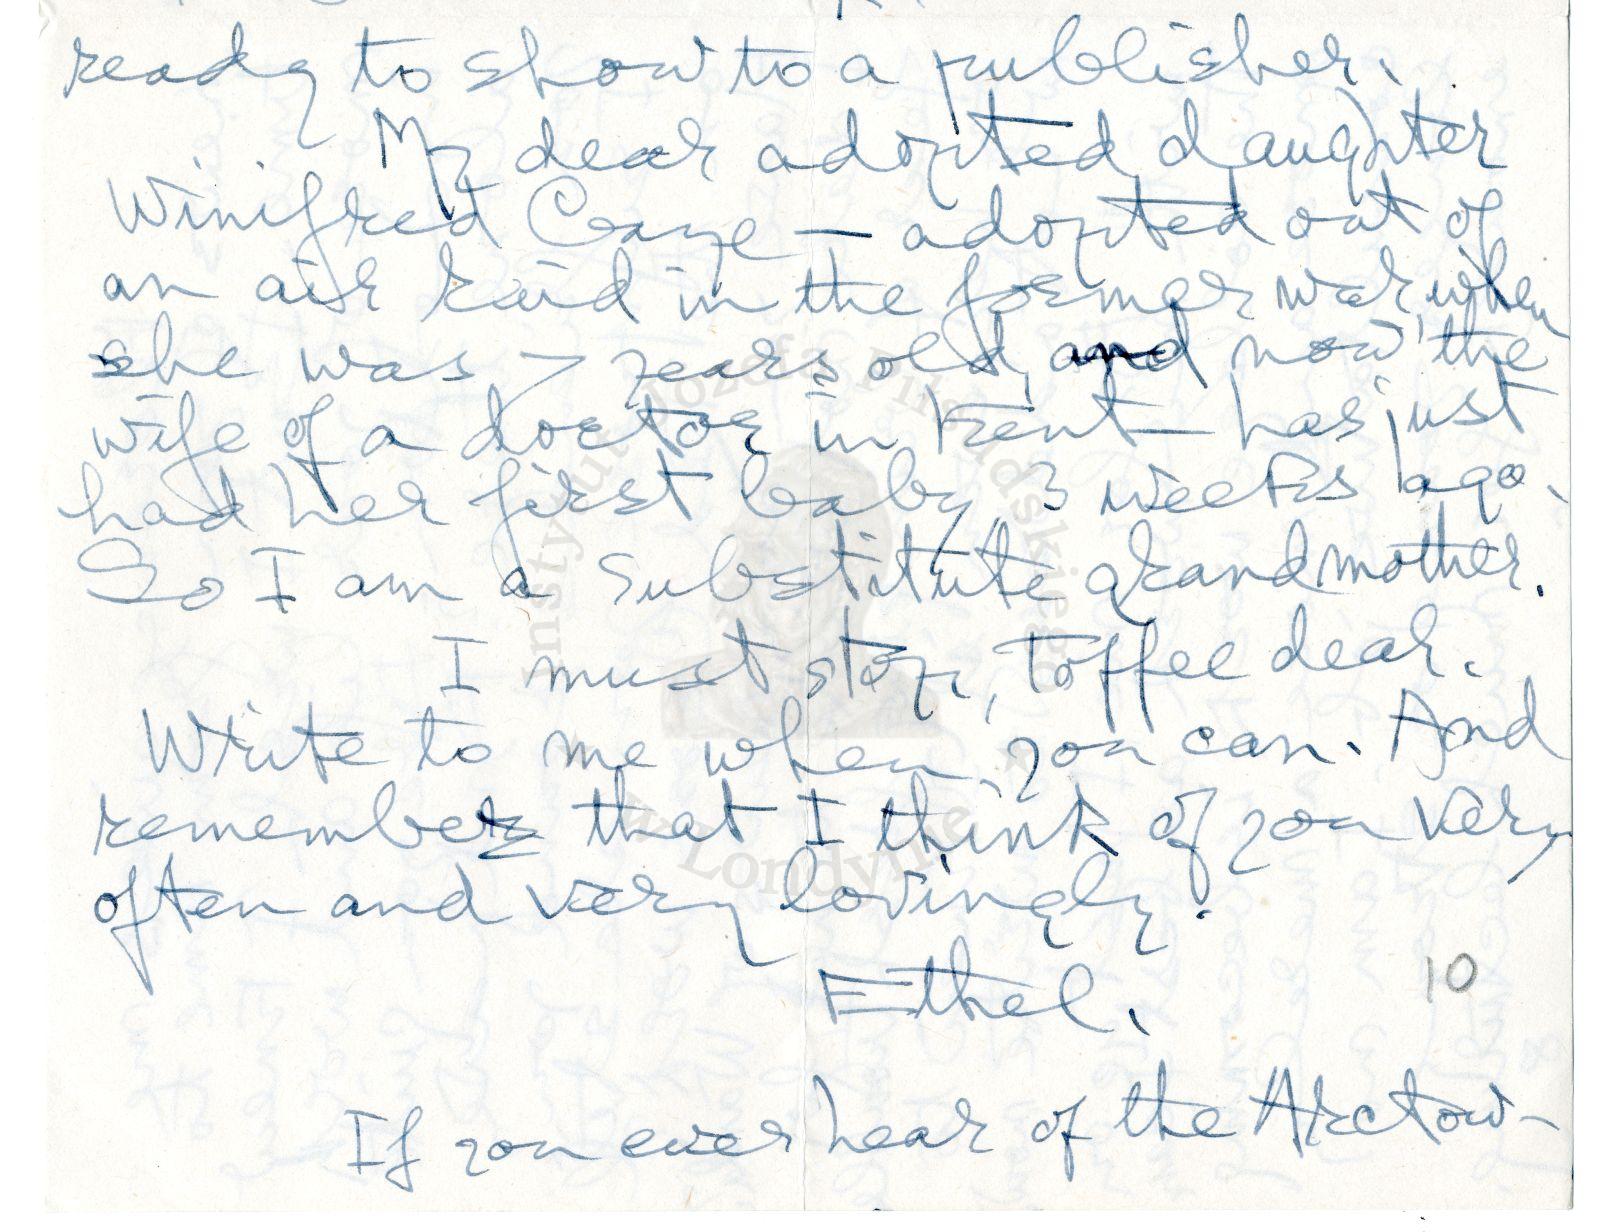 ready to show to a publisher.
My dear adopted daughter
Winifred — adopted out of
an air raid in the former war, when
she was 7 years old, and now the
wife of a doctor in Kent — has just
had her first baby 3 weeks ago.
So I am a substitute grandmother.
I must stop, Toffee dear.
Write to me when you can. And
remember that I think of you very
often and very lovingly.
Ethel.
10
If you ever hear of the Arctow-
Instytut Józefa Piłsudskiego
w Londynie